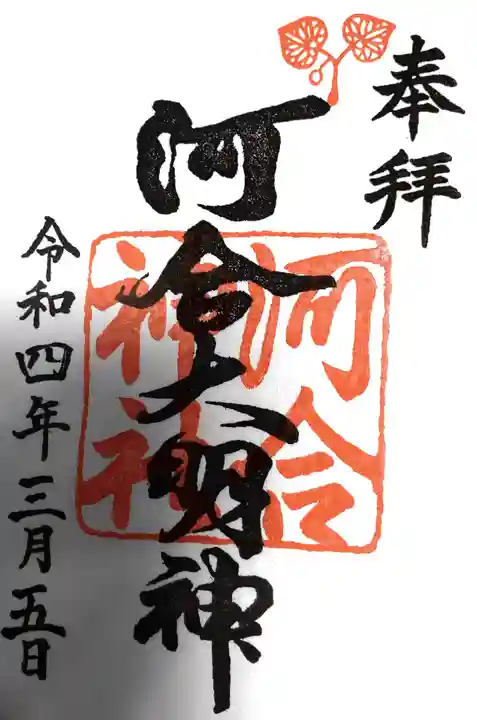 奉拝
河合大明神
河合
神社
令和四年三月五日